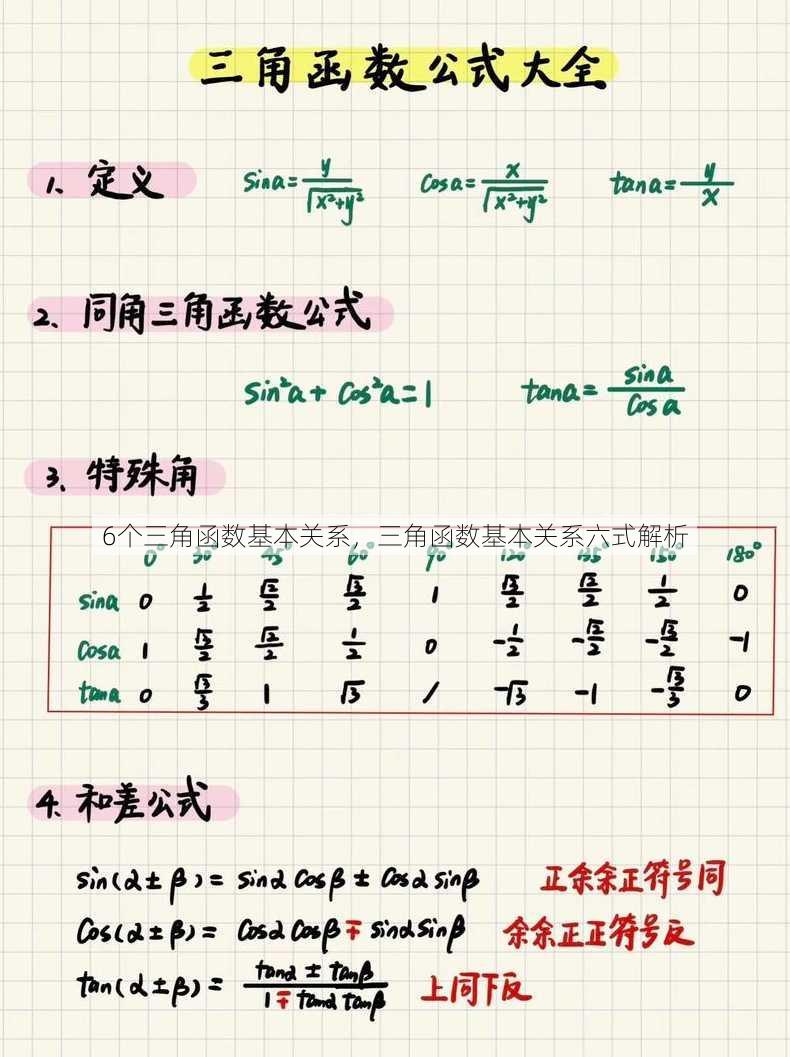 三角函数公式大全
1、定义 sina = y/√(x²+y²) cosa = x/√(x²+y²) tana = y/x
2、同角三角函数公式
sin²a + cos²a = 1 tana = sina/cosa
3、特殊角
6个三角函数基本关系，三角函数基本关系六式解析
0° 30° 45° 60° 90° 120° 135° 150° 180°
sina 0 1/2 √2/2 √3/2 1 √3/2 √2/2 1/2 0
cosa 1 √3/2 √2/2 1/2 0 -1/2 -√2/2 -√3/2 -1
tana 0 √3/3 1 √3 / -√3 -1 -√3/3 0
4、和差公式
sin(α±β) = sinα cosβ ± cosα sinβ 正余余正符号同
cos(α±β) = cosα cosβ ∓ sinα sinβ 余余正正符号反
tan(α±β) = (tanα ± tanβ)/(1 ∓ tanα tanβ) 上同下反